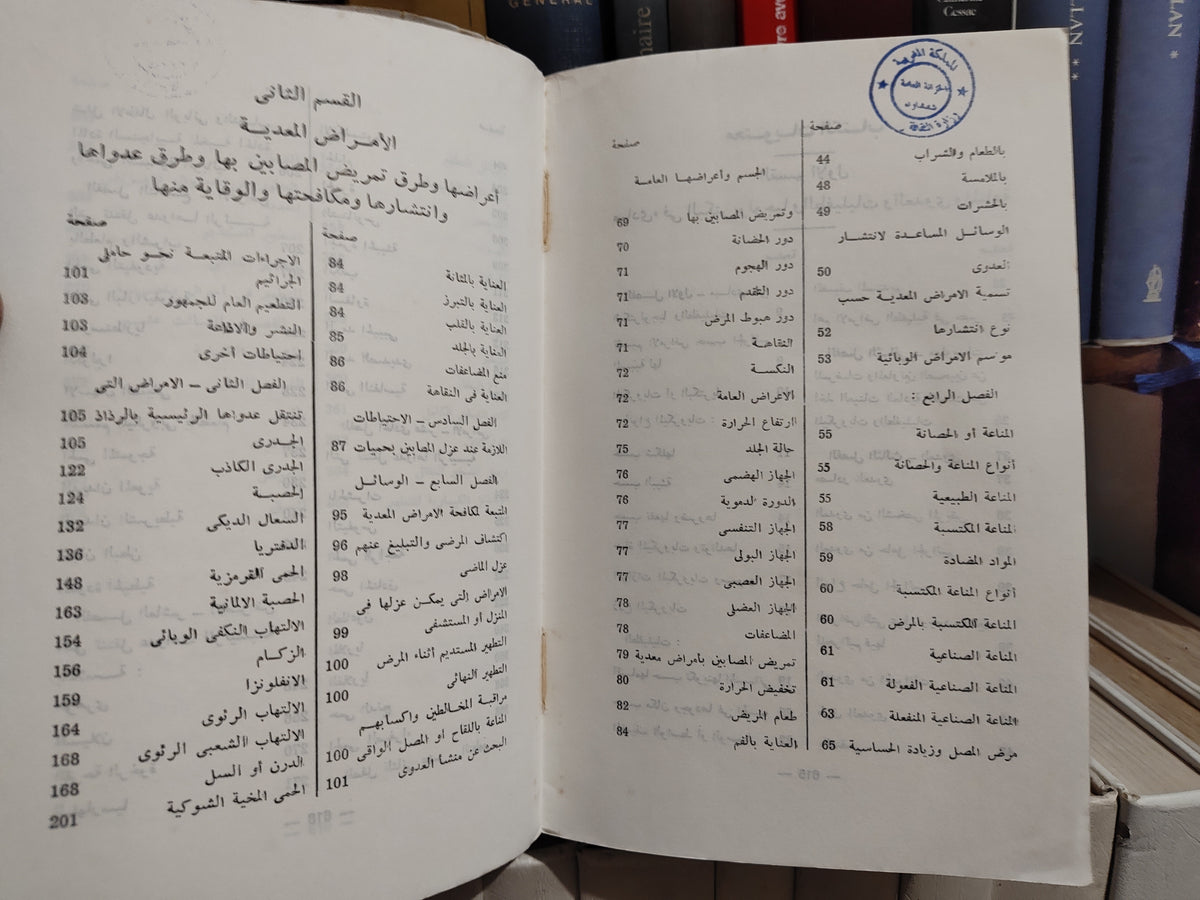 GENERAL
naire
vre ave
Cessac
LAN
**
LAN
*
المملكة المغربية
الخزانة العامة
شفشاون
وزارة الثقافة
صفحة
بالطعام والشراب 44
بالملامسة 48
بالحشرات 49
الوسائل المساعدة لانتشار
العدوى 50
تسمية الامراض المعدية حسب
نوع انتشارها 52
موسم الامراض الوبائية 53
الفصل الرابع :
المناعة أو الحصانة 55
أنواع المناعة والحصانة 55
المناعة الطبيعية 55
المناعة المكتسبة 58
المواد المضادة 59
أنواع المناعة المكتسبة 60
المناعة المكتسبة بالمرض 60
المناعة الصناعية 61
المناعة الصناعية الفعولة 61
المناعة الصناعية المنفعلة 63
مرض المصل وزيادة الحساسية 65
صفحة
الجسم وأعراضها العامة
وتمريض المصابين بها 69
دور الحضانة 70
دور الهجوم 71
دور التقدم 71
دور هبوط المرض 71
النقاهة 71
النكسة 72
الاعراض العامة 72
ارتفاع الحرارة 72
حالة الجلد 75
الجهاز الهضمى 76
الدورة الدموية 76
الجهاز التنفسى 77
الجهاز البولى 77
الجهاز العصبى 77
الجهاز العضلى 78
المضاعفات 78
تمريض المصابين بامراض معدية 79
تخفيض الحرارة 80
طعام المريض 82
العناية بالفم 84
— 615 —
القسم الثانى
الأمراض المعدية
أعراضها وطرق تمريض المصابين بها وطرق عدواها
وانتشارها ومكافحتها والوقاية منها
صفحة
العناية بالمثانة 84
العناية بالتبرز 84
العناية بالقلب 84
العناية بالجلد 85
منع المضاعفات 86
العناية فى النقاهة 86
الفصل السادس – الاحتياطات
اللازمة عند عزل المصابين بحميات 87
الفصل السابع – الوسائل
المتبعة لمكافحة الامراض المعدية 95
اكتشاف المرضى والتبليغ عنهم 96
عزل الماضى 98
الامراض التى يمكن عزلها فى
المنزل او المستشفى 99
التطهير المستديم أثناء المرض 100
التطهير النهائى 100
مراقبة المخالطين واكسابهم
المناعة باللقاح او المصل الواقى 100
البحث عن منشا العدوى 101
صفحة
الاجراءات المتبعة نحو حاملى
الجراثيم 101
التطعيم العام للجمهور 103
النشر والاذاعة 103
إحتياطات أخرى 104
الفصل الثانى – الامراض التى
تنتقل عدواها الرئيسية بالرذاذ 105
الجدرى 105
الجدرى الكاذب 122
الحصبة 124
السعال الديكى 132
الدفتريا 136
الحمى القرمزية 148
الحصبة الالمانية 163
الالتهاب النكفى الوبائى 154
الزكام 156
الانفلونزا 159
الالتهاب الرئوى 164
الالتهاب الشعبى الرئوى 168
الدرن أو السل 168
الحمى المخية الشوكية 201
— 616 —